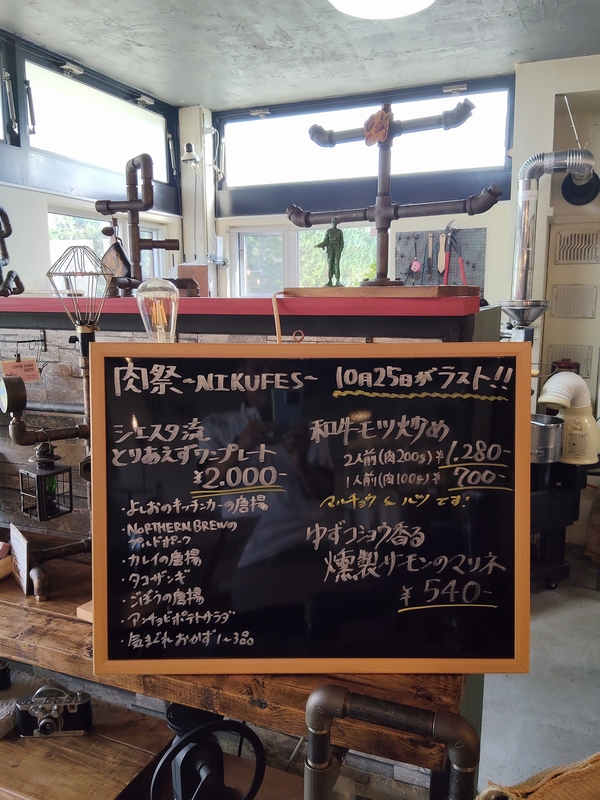 肉祭~NIKUFES~ 10月25日がラスト!!
シェスタ流
とりあえずワンプレート
¥2.000-
・よしおのキッチンカーの唐揚
・NORTHERN BREWの
プルドポーク
・カレイの唐揚
・タコザンギ
・ごぼうの唐揚
・アンチョビポテトサラダ
・気まぐれおかず1~3品
和牛モツ炒め
2人前(肉200g)¥1.280-
1人前(肉100g)¥700-
マルチョウ & ハツ です!
ゆずコショウ香る
燻製サーモンのマリネ
¥540-